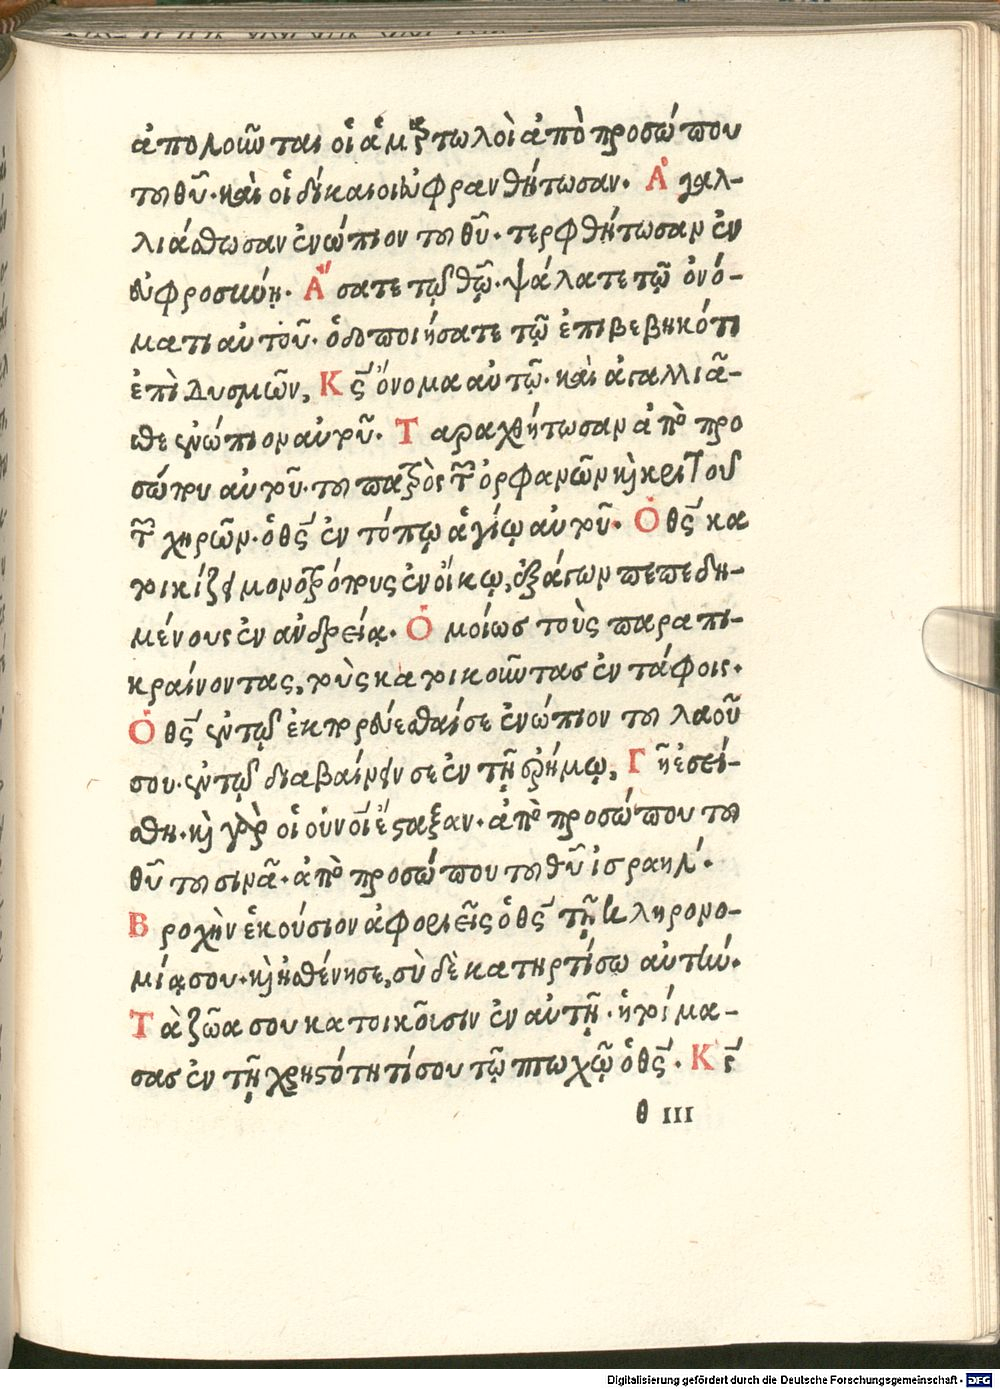 ἀπολοῦνται οἱ ἁμρτωλοὶ ἀπὸ προσώπου
τοῦ θῦ· καὶ οἱ δίκαιοι εὐφρανθήτωσαν. Ἀγαλ-
λιάσθωσαν ἐνώπιον τοῦ θῦ· τερφθήτωσαν ἐν
εὐφροσύνῃ. Ἄσατε τῷ θῷ· ψάλατε τῷ ὀνό-
ματι αὐτοῦ· ὁδοποιήσατε τῷ ἐπιβεβηκότι
ἐπὶ δυσμῶν, Κς ὄνομα αὐτῷ· καὶ ἀγαλλιᾶ-
σθε ἐνώπιον αὐτοῦ. Ταραχθήτωσαν ἀπὸ προ
σώπου αὐτοῦ· τοῦ πατρὸς τῶν ὀρφανῶν καὶ κριτοῦ
τῶν χηρῶν· ὁ θς ἐν τόπῳ ἁγίῳ αὐτοῦ. Ὁ θς κα
τοικίζει μονοτρόπους ἐν οἴκῳ, ἐξάγων πεπεδη-
μένους ἐν ἀνδρείᾳ. Ὁμοίως τοὺς παραπι-
κραίνοντας, τοὺς κατοικοῦντας ἐν τάφοις.
Ὁ θς ἐν τῷ ἐκπορεύεσθαί σε ἐνώπιον τοῦ λαοῦ
σου· ἐν τῷ διαβαίνειν σε ἐν τῇ ἐρήμῳ, Γῆ ἐσεί-
σθη· καὶ γὰρ οἱ οὐνοὶ ἔσταξαν· ἀπὸ προσώπου τοῦ
θῦ τοῦ σινᾶ· ἀπὸ προσώπου τοῦ θῦ ἰσραηλ.
Βροχὴν ἑκούσιον ἀφοριεῖς ὁ θς τῇ κληρονο-
μίᾳ σου· καὶ ἠσθένησε, σὺ δὲ κατηρτίσω αὐτήν.
Τὰ ζῶα σου κατοικοῦσιν ἐν αὐτῇ· ἡτοίμα-
σας ἐν τῇ χρηστότητί σου τῷ πτωχῷ ὁ θς. Κς
θ III
Digitalisierung gefördert durch die Deutsche Forschungsgemeinschaft - DFG